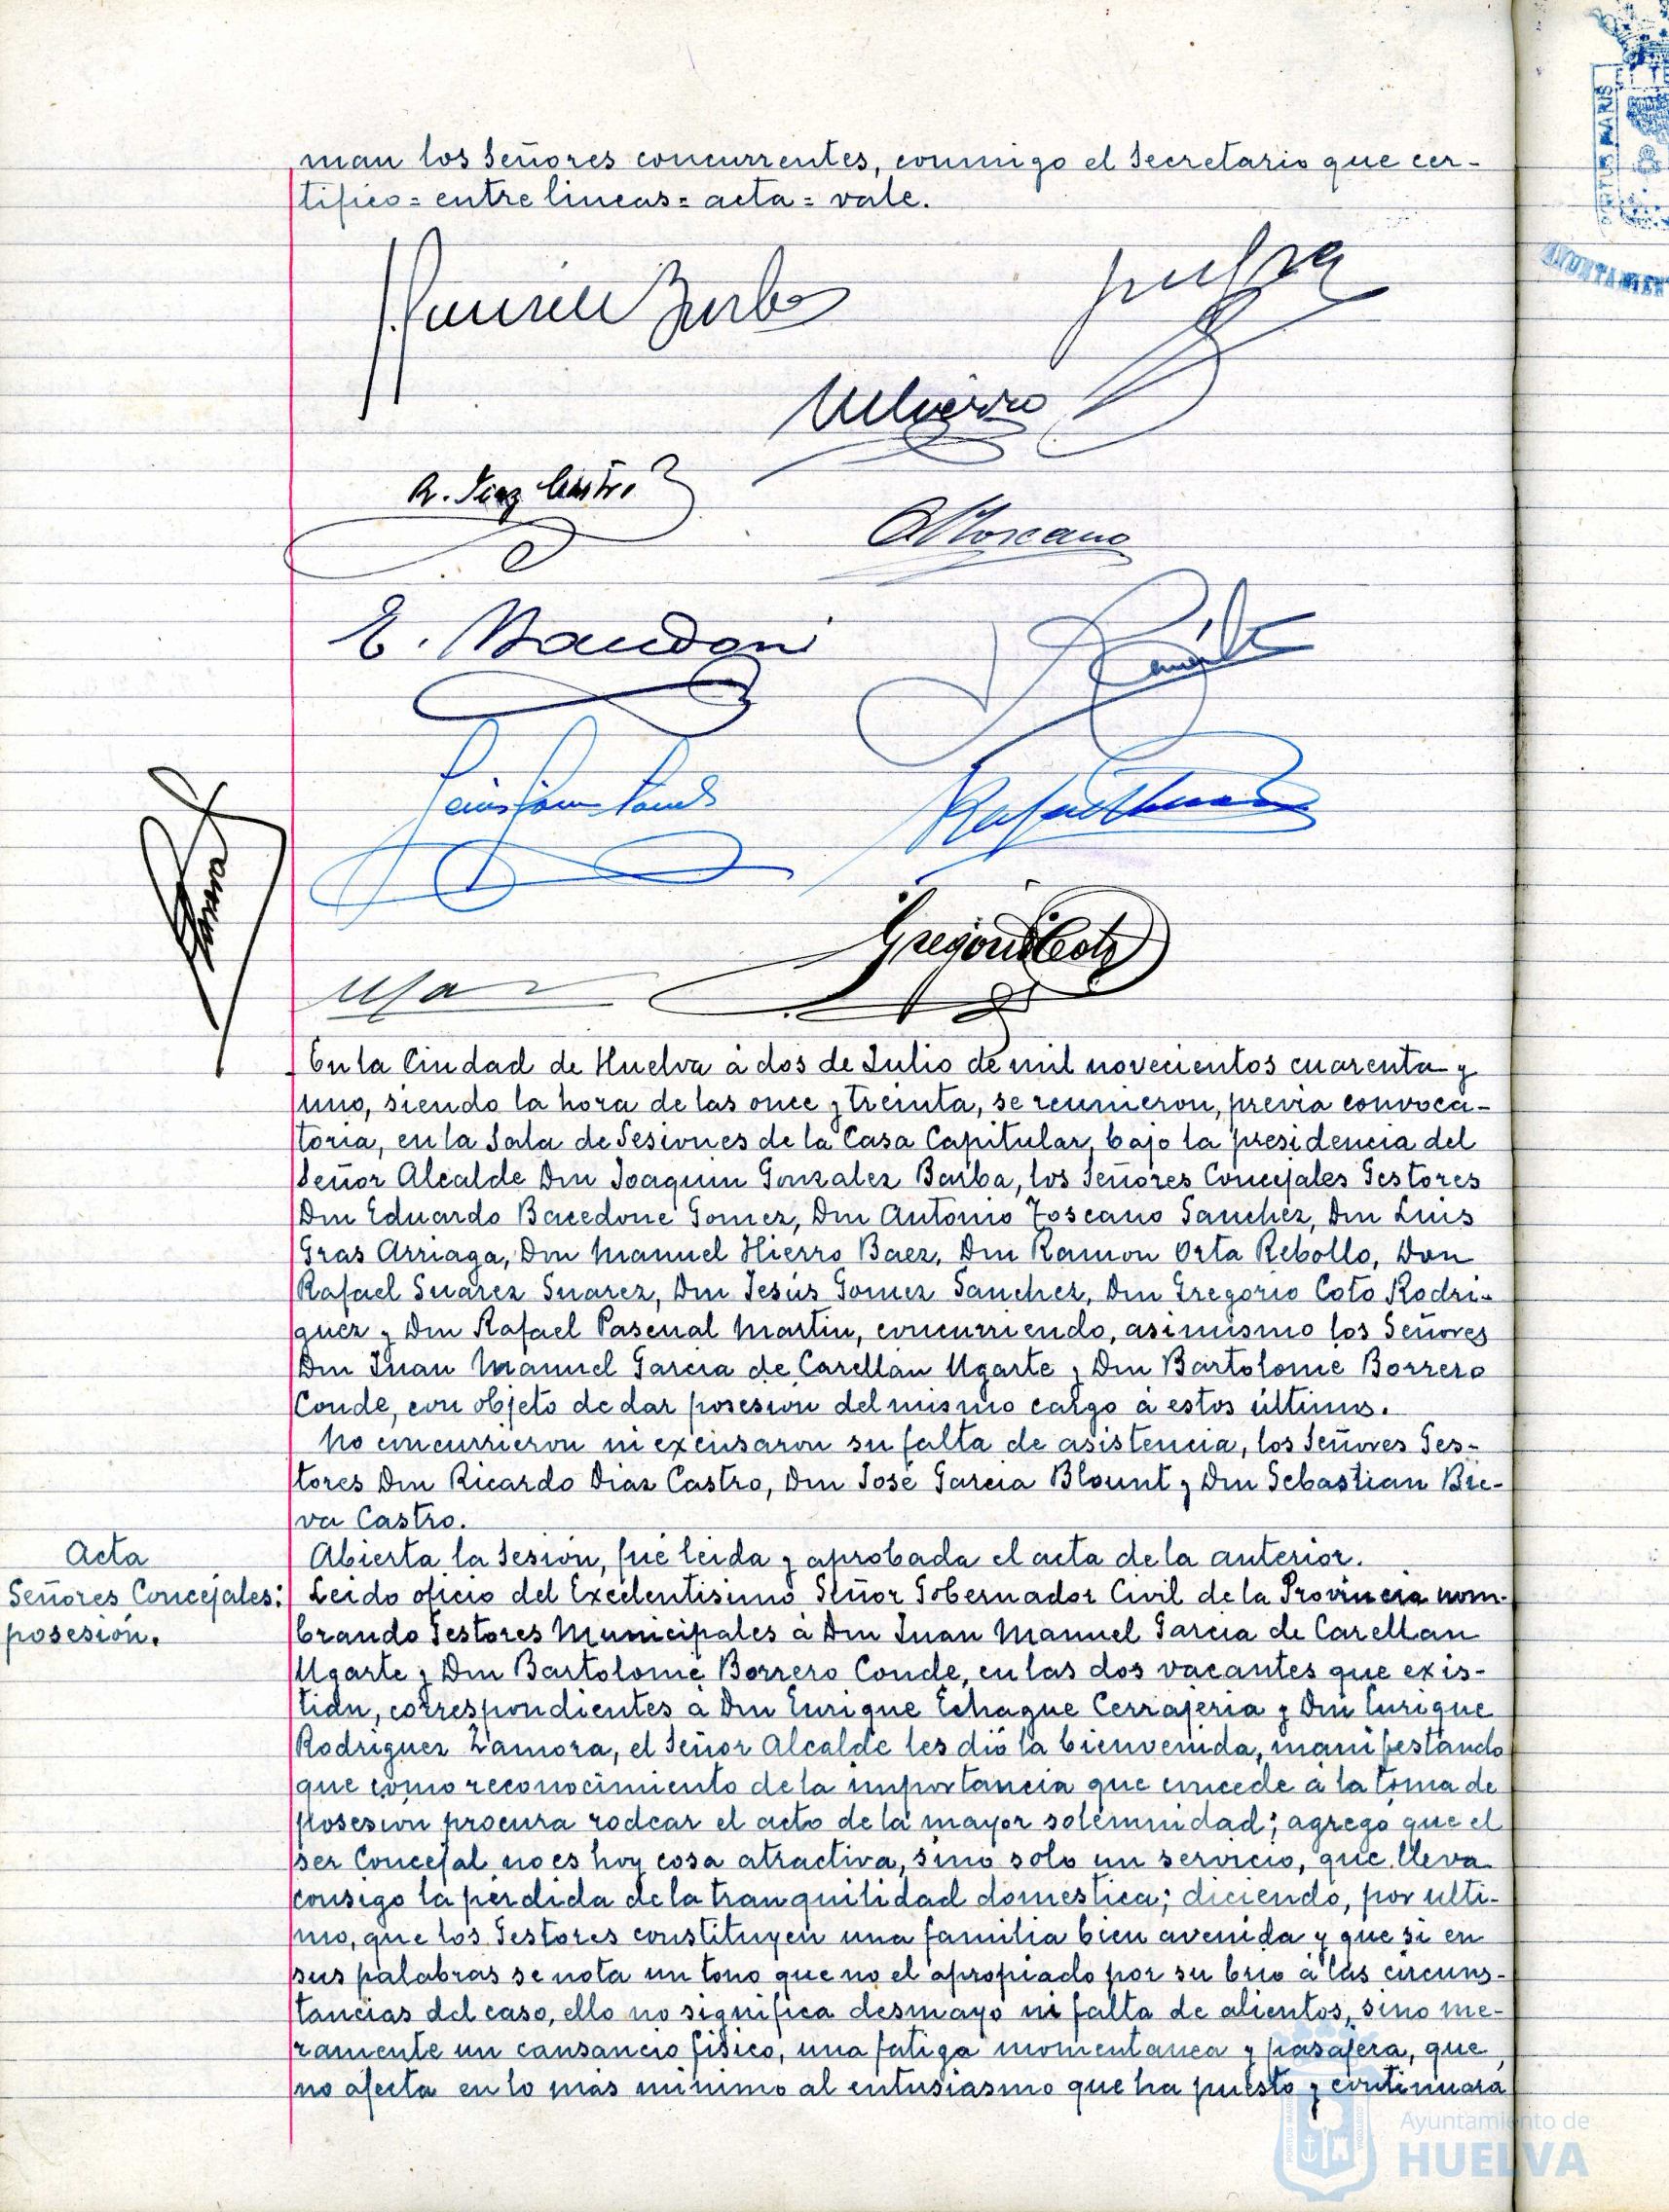 man los Señores concurrentes, conmigo el Secretario que cer-
tifico = entre lineas = acta = vale.
R. Diaz Castro
A Toscano
Gregorio Coto
En la Ciudad de Huelva á dos de Julio de mil novecientos cuarenta y
uno, siendo la hora de las once y treinta, se reunieron, previa convoca-
toria, en la Sala de Sesiones de la Casa Capitular, bajo la presidencia del
Señor Alcalde Don Joaquin Gonzalez Barba, los Señores Concejales Gestores
Don Eduardo Bacedone Gomez, Don Antonio Toscano Sanchez, Don Luis
Gras Arriaga, Don Manuel Hierro Baez, Don Ramon Orta Rebollo, Don
Rafael Suarez Suarez, Don Jesús Gomez Sanchez, Don Gregorio Coto Rodri-
guez y Don Rafael Pascual Martin, concurriendo, asimismo los Señores
Don Juan Manuel Garcia de Carellán Ugarte y Don Bartolomé Borrero
Conde, con objeto de dar posesion del mismo cargo á estos últimos.
No concurrieron ni excusaron su falta de asistencia, los Señores Ges-
tores Don Ricardo Diaz Castro, Don José Garcia Blount y Don Sebastian Bre-
va Castro.
Acta
Abierta la Sesión, fué leida y aprobada el acta de la anterior.
Señores Concejales:
posesión.
Leido oficio del Excelentísimo Señor Gobernador Civil de la Provincia nom-
brando Gestores Municipales á Don Juan Manuel Garcia de Carellan
Ugarte y Don Bartolomé Borrero Conde, en las dos vacantes que exis-
tian, correspondientes á Don Enrique Echague Cerrajeria y Don Enrique
Rodriguez Zamora, el Señor Alcalde les dió la bienvenida, manifestando
que como reconocimiento de la importancia que concede á la toma de
posesion procura rodear el acto de la mayor solemnidad; agregó que el
ser Concejal no es hoy cosa atractiva, sino solo un servicio, que lleva
consigo la pérdida de la tranquilidad domestica; diciendo, por ulti-
mo, que los Gestores constituyen una familia bien avenida y que si en
sus palabras se nota un tono que no el apropiado por su brio á las circuns-
tancias del caso, ello no significa desmayo ni falta de alientos, sino me-
ramente un cansancio fisico, una fatiga momentanea y pasajera, que
no afecta en lo más minimo al entusiasmo que ha puesto y continuará
Ayuntamiento de
HUELVA